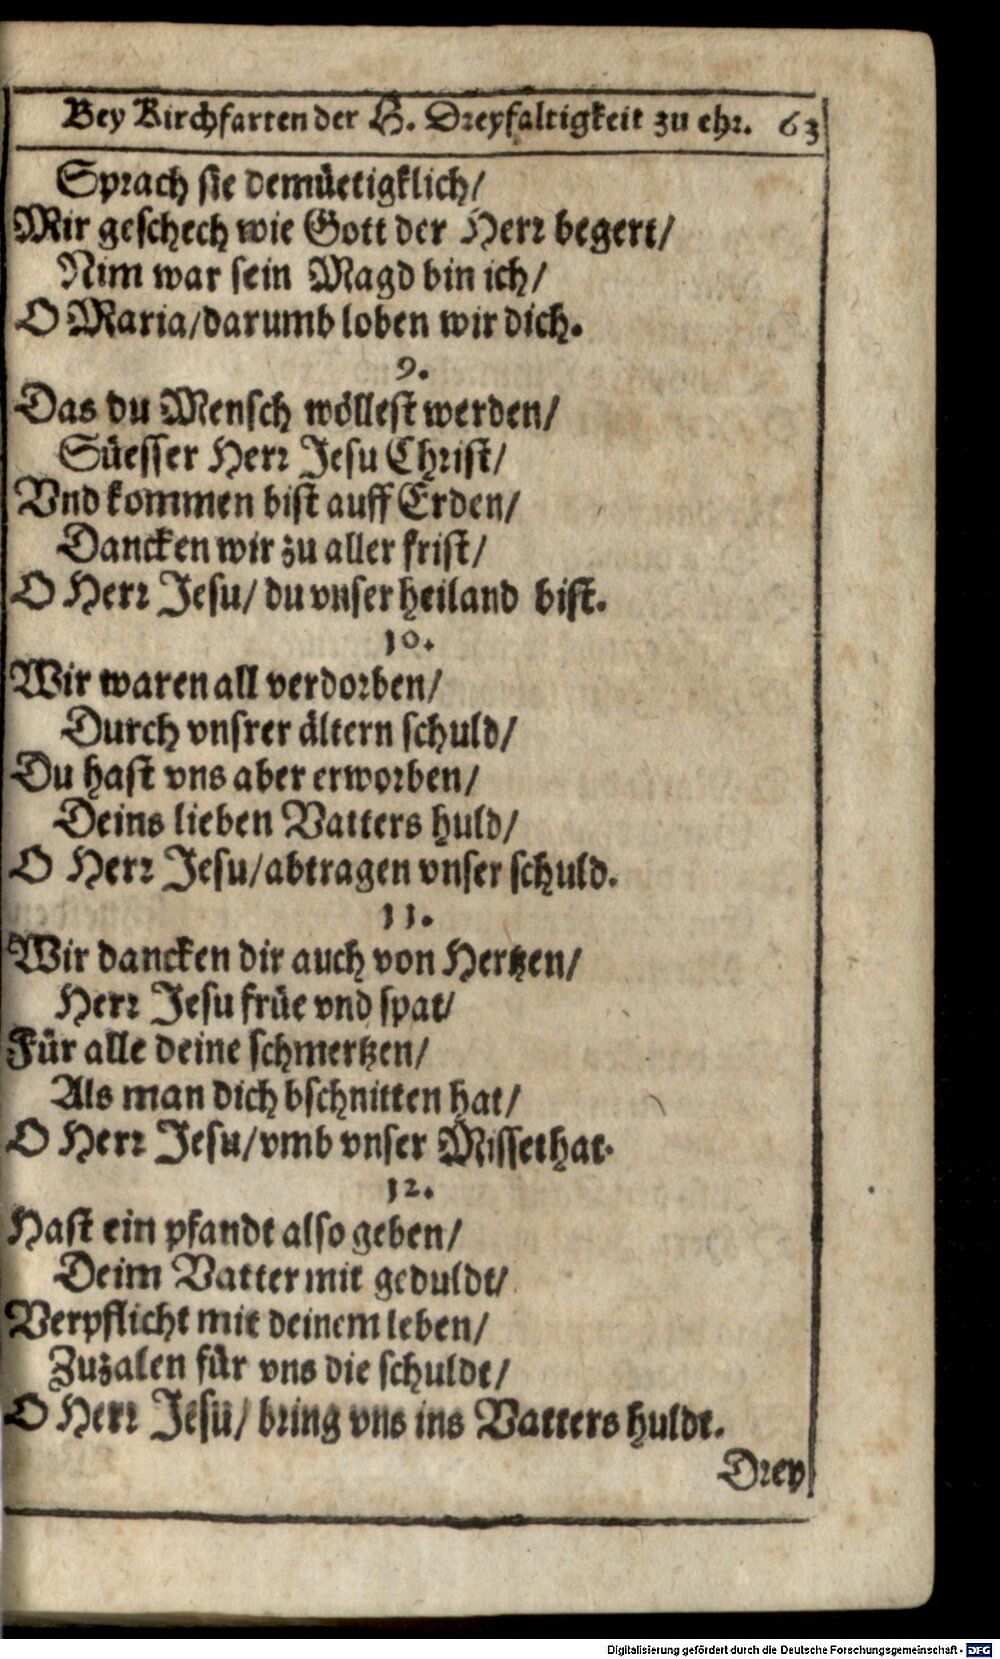 Bey Kirchfarten der H. Dreyfaltigkeit zu ehr. 63
Sprach sie demüetigklich/
Mir geschech wie Gott der Herr begert/
Nim war sein Magd bin ich/
O Maria/darumb loben wir dich.
9.
Das du Mensch wöllest werden/
Süesser Herr Jesu Christ/
Vnd kommen bist auff Erden/
Dancken wir zu aller frist/
O Herr Jesu/ du vnser heiland bist.
10.
Wir waren all verdorben/
Durch vnsrer ältern schuld/
Du hast vns aber erworben/
Deins lieben Vatters huld/
O Herr Jesu/abtragen vnser schuld.
11.
Wir dancken dir auch von Hertzen/
Herr Jesu früe vnd spat/
Für alle deine schmertzen/
Als man dich bschnitten hat/
O Herr Jesu/vmb vnser Missethat.
12.
Hast ein pfandt also geben/
Deim Vatter mit geduldt/
Verpflicht mit deinem leben/
Zuzalen für vns die schuldt/
O Herr Jesu/ bring vns ins Vatters huldt.
Drey
Digitalisierung gefördert durch die Deutsche Forschungsgemeinschaft - DFG